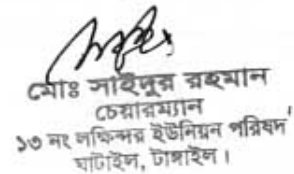 মোঃ সাইদুর রহমান
চেয়ারম্যান
১৩ নং লক্ষিন্দর ইউনিয়ন পরিষদ
ঘাটাইল, টাঙ্গাইল।